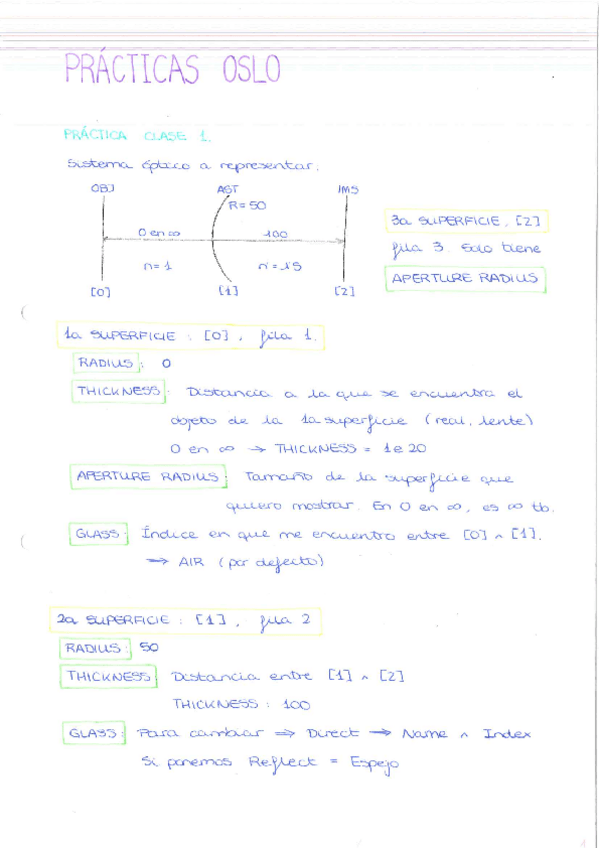 PRÁCTICAS OSLO
PRÁCTICA CLASE 1.
Sistema óptico a representar:
OBJ AST IMS
R=50
O en ∞ 100
n=1 n'=1'5
[0] [1] [2]
3a SUPERFICIE, [2]
fila 3. Solo tiene
APERTURE RADIUS
1a SUPERFICIE : [0], fila 1.
RADIUS: 0
THICKNESS: Distancia a la que se encuentra el
objeto de la 1a superficie (real, lente)
O en ∞ → THICKNESS = 1e20
APERTURE RADIUS: Tamaño de la superficie que
quiero mostrar. En O en ∞, es ∞ tb.
GLASS: Índice en que me encuentro entre [0] ^ [1].
⇒ AIR (por defecto)
2a SUPERFICIE : [1], fila 2
RADIUS: 50
THICKNESS: Distancia entre [1] ^ [2]
THICKNESS: 100
GLASS: Para cambiar ⇒ Direct → Name ^ Index
Si ponemos Reflect = Espejo
1